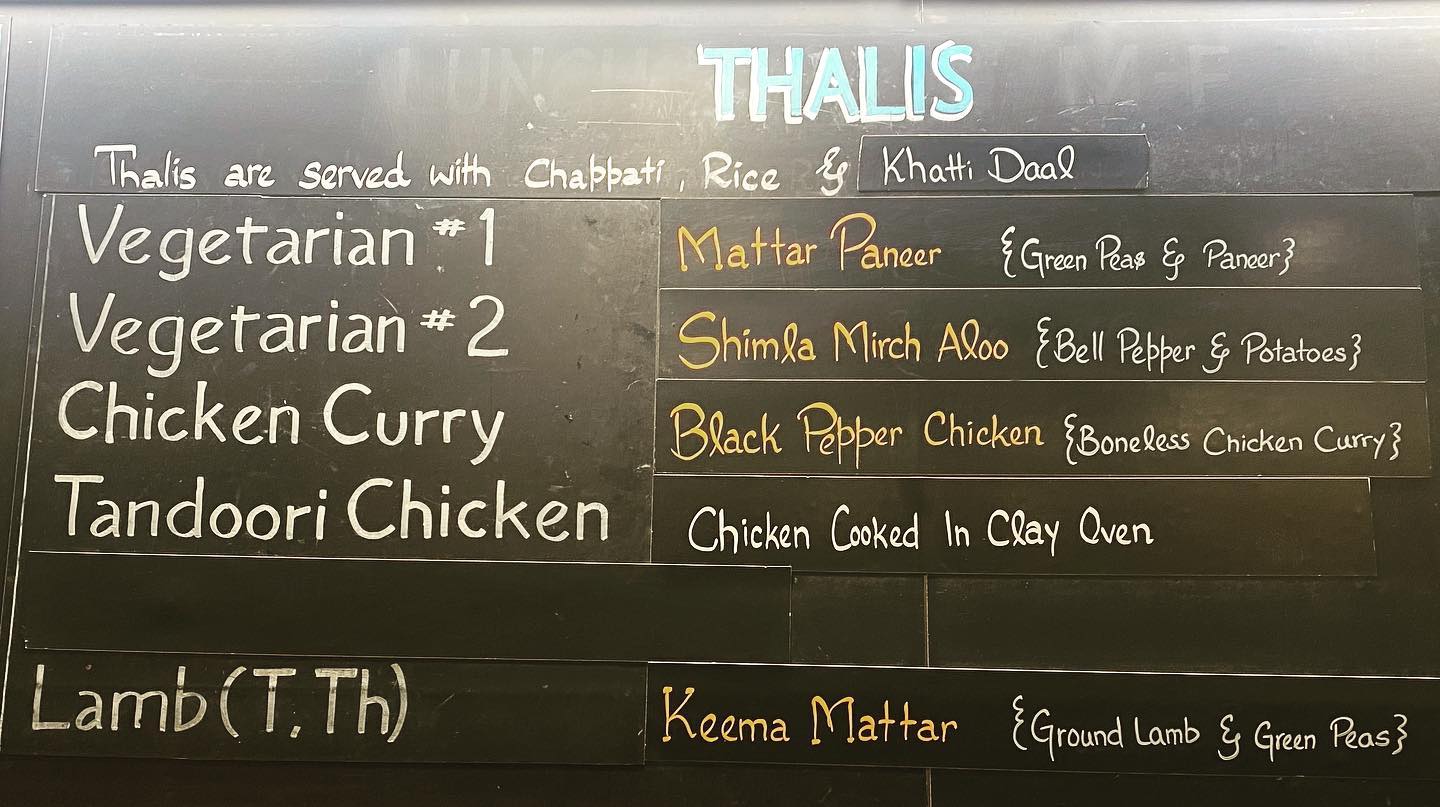 THALIS
Thalis are served with Chappati, Rice & Khatti Daal
Vegetarian #1 Mattar Paneer {Green Peas & Paneer}
Vegetarian #2 Shimla Mirch Aloo {Bell Pepper & Potatoes}
Chicken Curry Black Pepper Chicken {Boneless Chicken Curry}
Tandoori Chicken Chicken Cooked In Clay Oven
Lamb (T,Th) Keema Mattar {Ground Lamb & Green Peas}